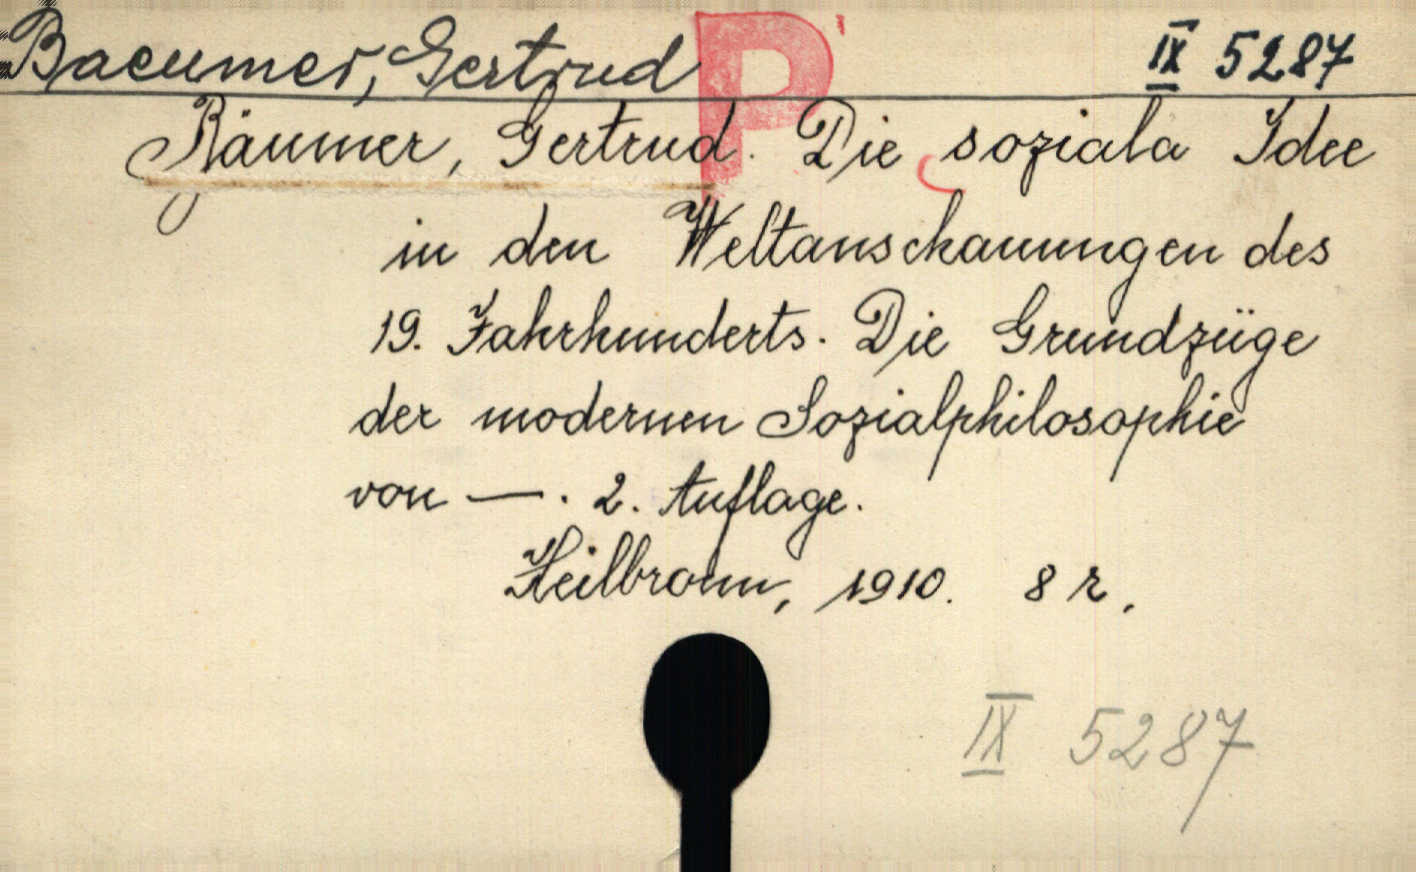 Baeumer, Gertrud P IX 5287
Bäumer, Gertrud. Die soziala Idee
in den Weltanschauungen des
19. Jahrhunderts. Die Grundzüge
der modernen Sozialphilosophie
von —. 2. Auflage.
Heilbronn, 1910. 8 r.
IX 5287